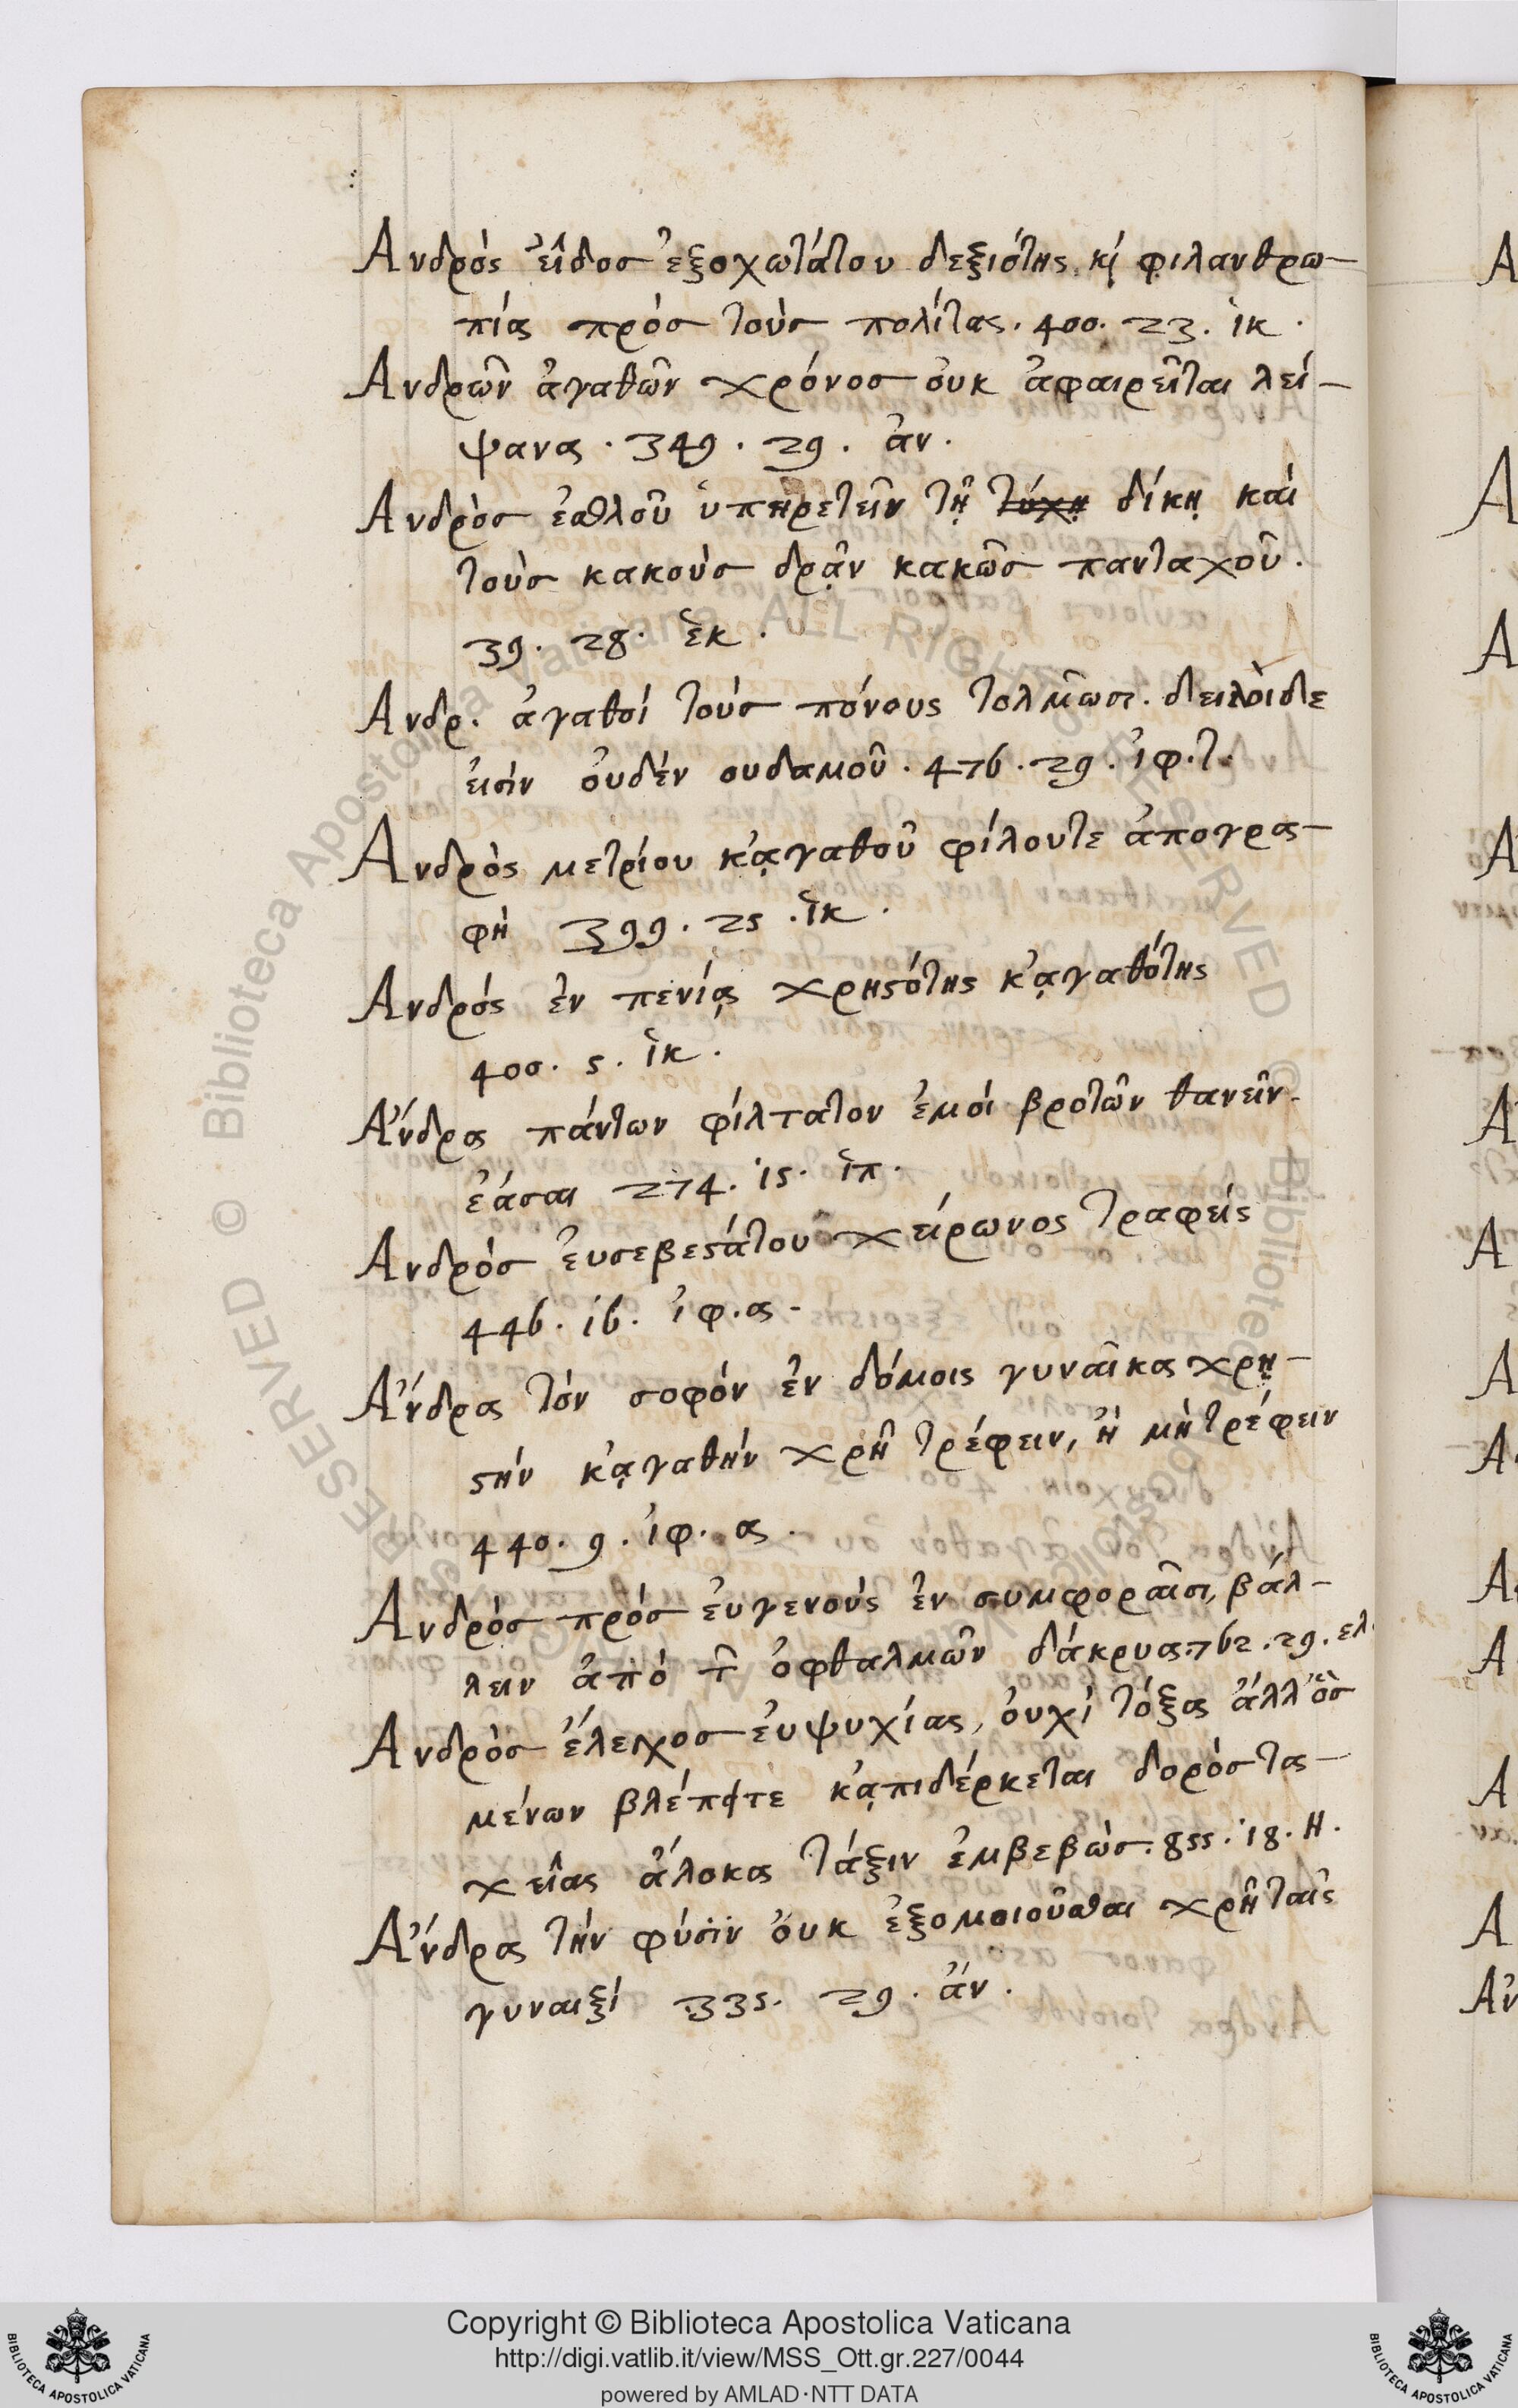 Ανδρὸς εἶδοσ ἐξοχωτάτου δεξιότης κὶ φιλανθρω-
πία πρὸσ τοὺσ πολίτας. 400. 23. ἱκ.
Ανδρῶν ἀγαθῶν χρόνοσ οὐκ ἀφαιρεῖται λεί-
ψανα. 349. 29. ἀν.
Ανδρὸσ ἐσθλοῦ ὑπηρετεῖν τῇ τύχῃ δίκῃ καὶ
τοὺσ κακοὺσ δρᾷν κακῶσ πανταχοῦ.
39. 28. ἑκ.
Ανδρ. ἀγαθοὶ τοὺσ πόνους τολμῶσι. δειλοὶ δε
εἰσὶν οὐδὲν ουδαμοῦ. 476. 29. ἰφ. τ.
Ανδρὸς μετρίου κᾀγαθοῦ φίλουτε ἀπογρα-
φὴ 399. 25. ἱκ.
Ανδρός ἐν πενίᾳ χρηστότης κᾀγαθότης
400. 5. ἱκ.
Ανδρὸσ εὐσεβεστάτου χείρωνος τραφεὶς
446. 16. ἰφ. α.
Ἄνδρα πάντων φίλτατον ἐμοὶ βροτῶν θανεῖν
ἐάσαι 274. 15. ἱπ.
Ἄνδρα τὸν σοφὸν ἐν δόμοις γυναῖκα χρη-
στὴν κᾀγαθὴν χρῆ τρέφειν, ἢ μὴ τρέφειν
440. 9. ἰφ. α.
Ανδρὸσ πρὸσ εὐγενοὺς ἐν συμφοραῖσι, βάλ-
λειν ἀπὸ τ῀ ὀφθαλμῶν δάκρυα. 762. 29. ελ
Ανδρὸσ ἔλεγχοσ εὐψυχίας, οὐχὶ τόξα ἀλλ' ὃσ
μένων βλέπει τὲ κᾀπιδέρκεται δορὸσ τα-
χεῖας ἄλοκα τάξιν ἐμβεβὼσ. 855. 18. Η.
Ἄνδρα τὴν φύσιν οὐκ ἐξομοιοῦσθαι χρῆ ταῖς
γυναιξὶ 335. 29. ἀν.
Copyright © Biblioteca Apostolica Vaticana
http://digi.vatlib.it/view/MSS_Ott.gr.227/0044
powered by AMLAD·NTT DATA